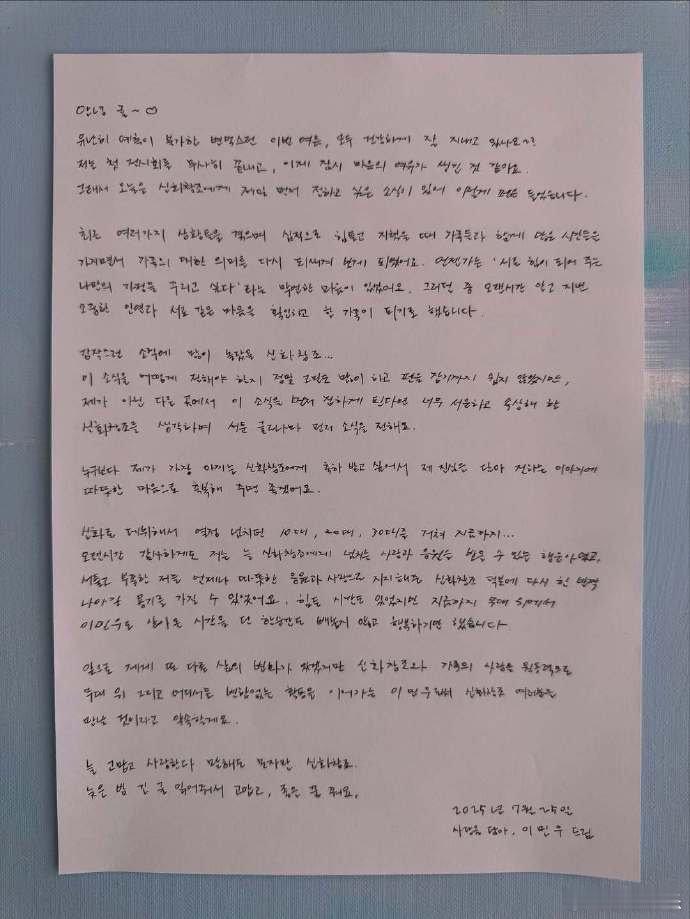 안녕 귤~♡
유난히 예측이 불가한 변덕스런 이번 여름, 모두 건강하게 잘 지내고 있나요~?
저는 첫 전시회를 무사히 끝내고, 이제 잠시 마음의 여유가 생긴 것 같아요.
그래서 오늘은 신화창조에게 제일 먼저 전하고 싶은 소식이 있어 이렇게 펜을 들었습니다.
최근 여러가지 상황들을 겪으며 심적으로 힘들고 지쳤을 때 가족들과 함께 많은 시간들을
가지면서 가족의 대한 의미를 다시 되새기게 되었어요. 언젠가는 '서로 힘이 되어 주는
나만의 가정을 꾸리고 싶다'라는 막연한 마음이 있었어요. 그러던 중 오랜시간 알고 지낸
소중한 인연과 서로 같은 마음을 확인하고 한 가족이 되기로 했습니다.
갑작스런 소식에 많이 놀랐을 신화창조...
이 소식을 어떻게 전해야 하지 정말 고민도 많이 하고 펜을 잡기까지 쉽지 않았지만,
제가 아닌 다른 곳에서 이 소식을 먼저 접하게 된다면 너무 서운하고 속상해 할
신화창조를 생각하며 서툰 글이나마 먼저 소식을 전해요.
누구보다 제가 가장 아끼는 신화창조에게 축하 받고 싶어서 제 진심을 담아 전하는 이야기에
따뜻한 마음으로 축복해 주면 좋겠어요.
신화로 데뷔해서 열정 넘치던 10대, 20대, 30대를 거쳐 지금까지...
오랜시간 감사하게도 저는 늘 신화창조에게 넘치는 사랑과 응원을 받을 수 있는 행운아였고,
서툴고 부족한 저를 언제나 따뜻한 응원과 사랑으로 지지해준 신화창조 덕분에 다시 한 번 더
나아갈 용기를 가질 수 있었어요. 힘든 시간도 있었지만 지금까지 무대 위에서
이민우로 살아온 시간을 단 한순간도 빼놓지 않고 행복하기만 했습니다
앞으로 제게 또 다른 삶의 변화가 있겠지만 신화창조와 가족의 사랑을 원동력으로
무대 위 그리고 어디서든 변함없는 활동을 이어가는 이민우로써 신화창조 여러분을
만날 것이라고 약속할게요.
늘 고맙고 사랑한다 말해도 모자란 신화창조.
늦은 밤 긴 글 읽어줘서 고맙고, 좋은 꿈 꿔요.
2025년 7월 25일
사랑을 담아, 이민우 드림